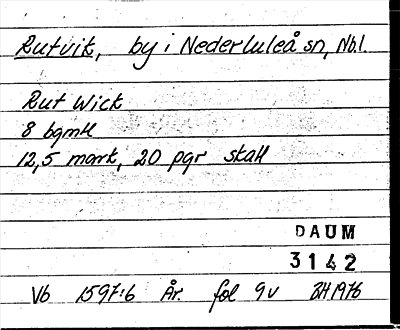 Rutvik, by i Nederluleå sn, Nbl.
Rut Wick
8 bgmtl
12,5 mark, 20 pgr skatt
DAUM
3142
Vb 1597:6 År. fol 9v BH 1976